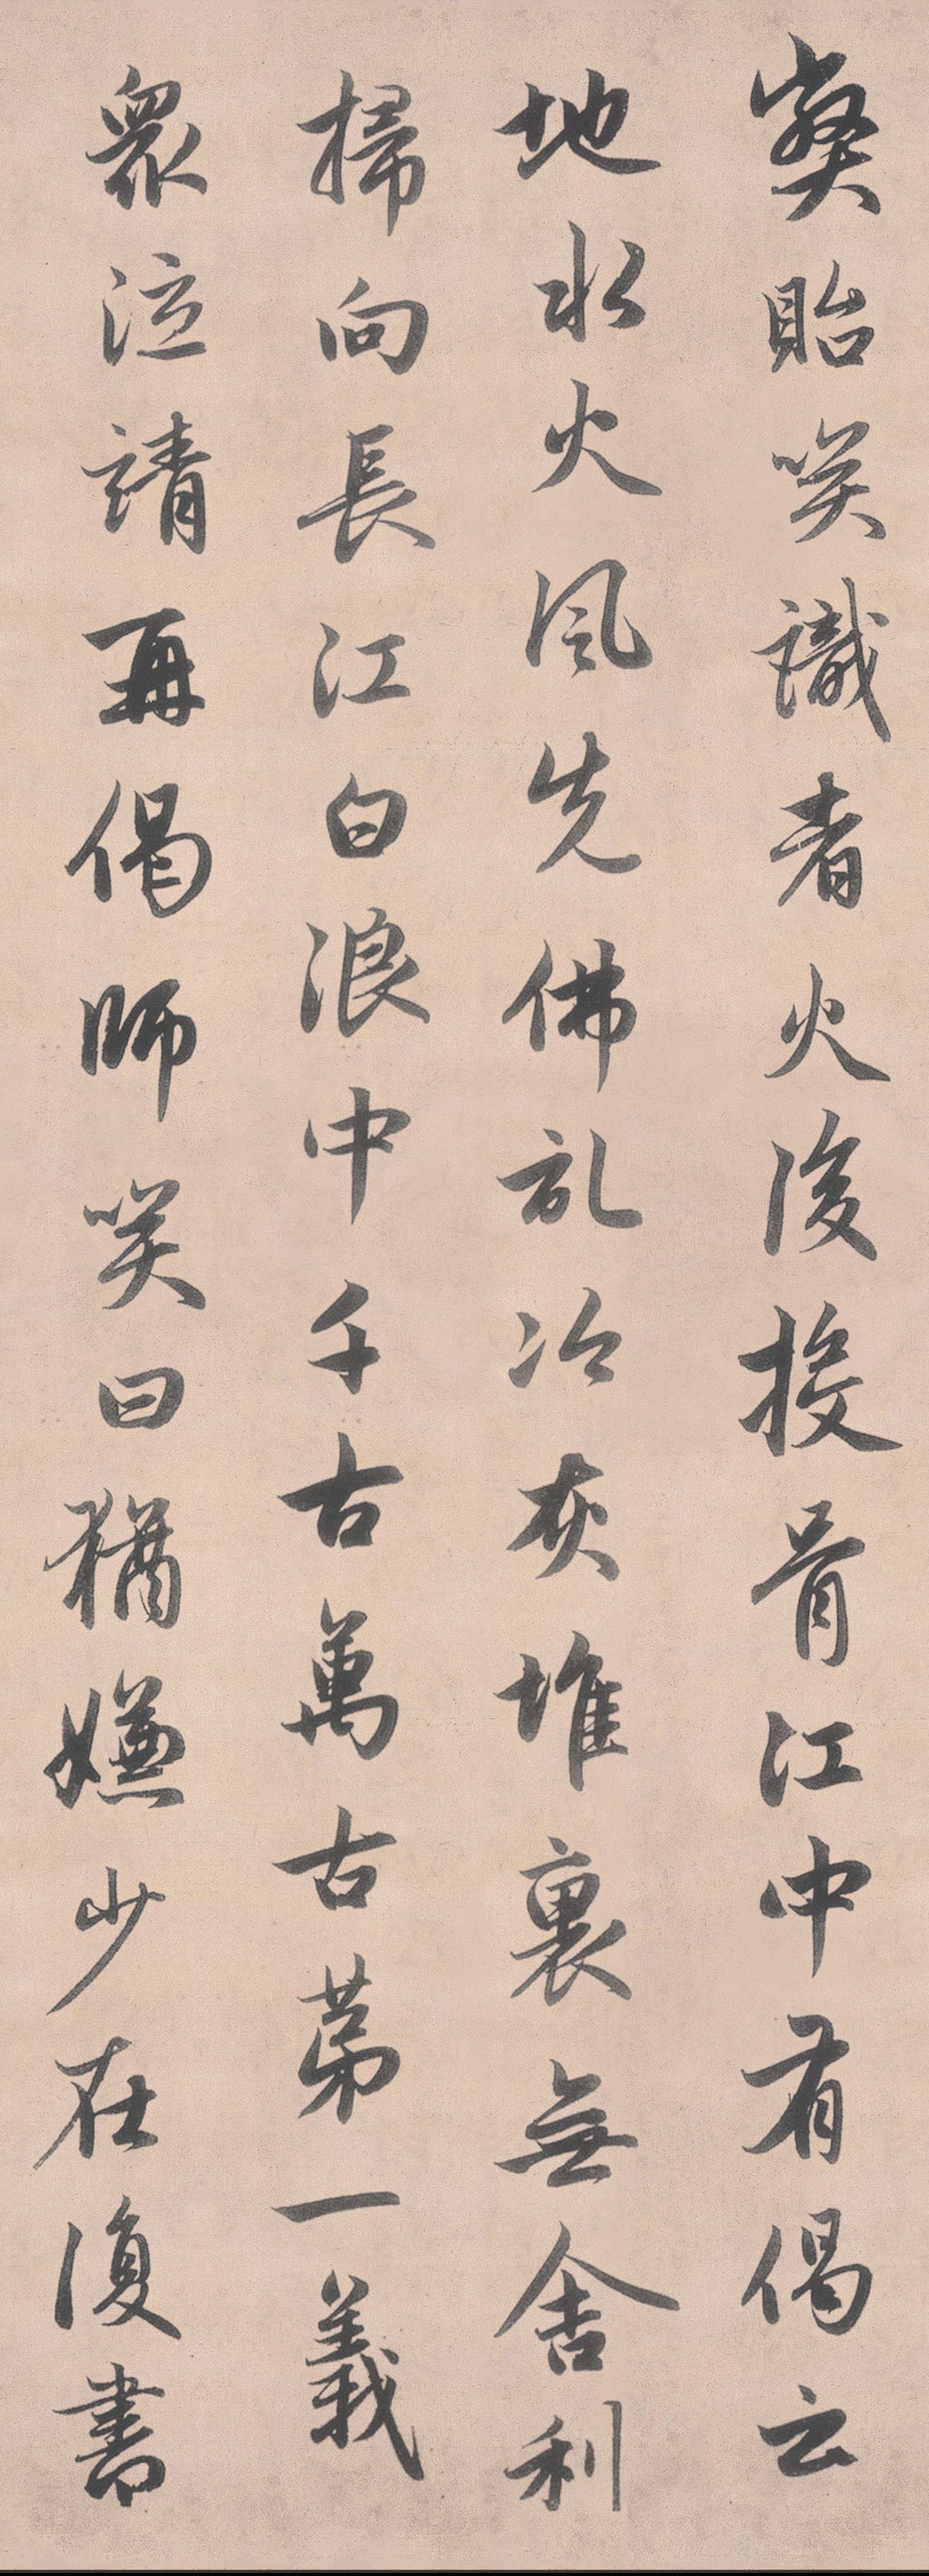 貽咲識者火後投骨江中有偈云
地水火風先佛乱冷灰堆裏無舍利
掃向長江白浪中千古萬古苐一義
衆泣請再偈師咲曰猶嫌少在復書